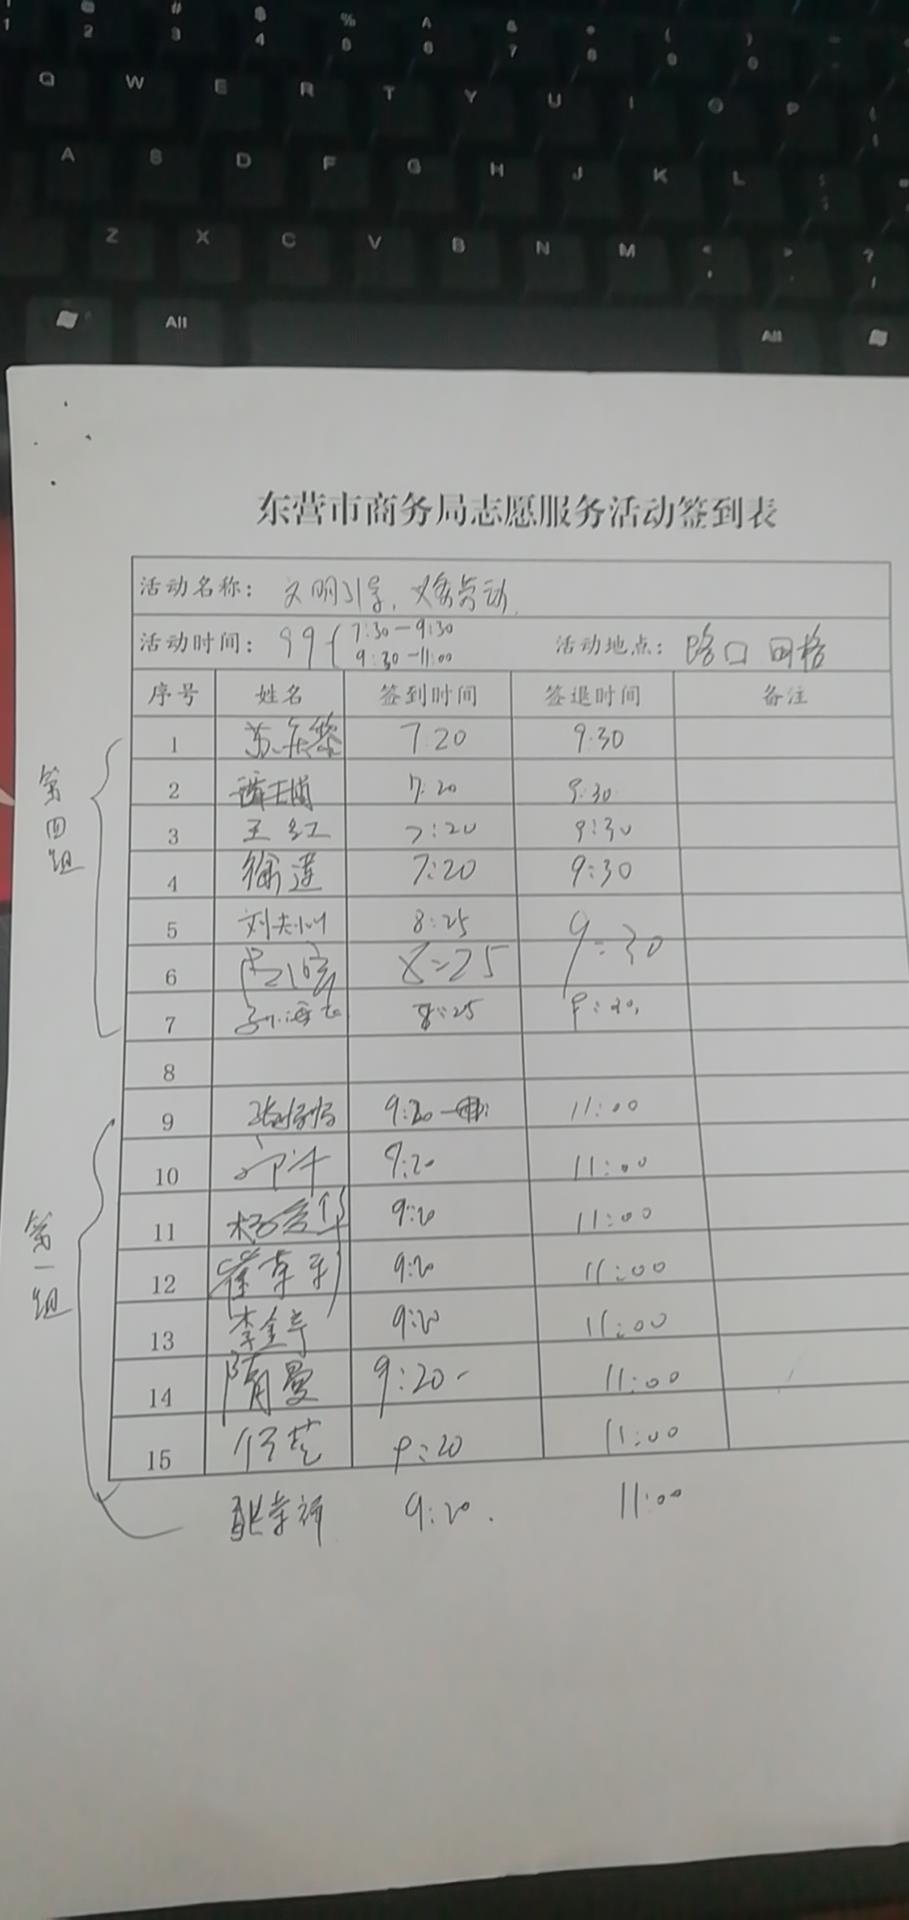 1 2 3 4 % 5 6 & 7 8 ( 9 ) 0
Q W E R T Y U I O P
A S D F G H J K L
Z X C V B N M < , > . ? /
Alt Alt
东营市商务局志愿服务活动签到表
活动名称: 文明引导, 义务劳动
活动时间: 99 { 7:30-9:30 9:30-11:00 活动地点: 路口 网格
序号 姓名 签到时间 签退时间 备注
第四组
1 7.20 9.30
2 7:20 9:30
3 王红 7:20 9:30
4 徐莲 7:20 9:30
5 8:25 9:30
6 8:25
7 8:25 9:30
8
第一组
9 9:20 11:00
10 9:20 11:00
11 9:20 11:00
12 9:20 11:00
13 李金亭 9:20 11:00
14 隋曼 9:20 11:00
15 9:20 11:00
9:20. 11:00